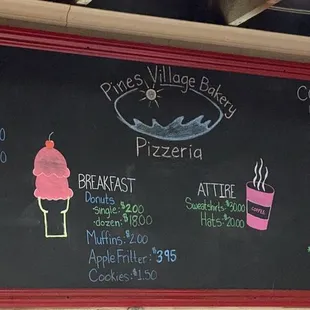 Pines Village Bakery
Pizzeria
BREAKFAST
Donuts
single: $2.00
dozen: $18.00
Muffins: $2.00
Apple Fritter: $3.95
Cookies: $1.50
ATTIRE
Sweatshirts: $30.00
Hats: $20.00
COFFEE